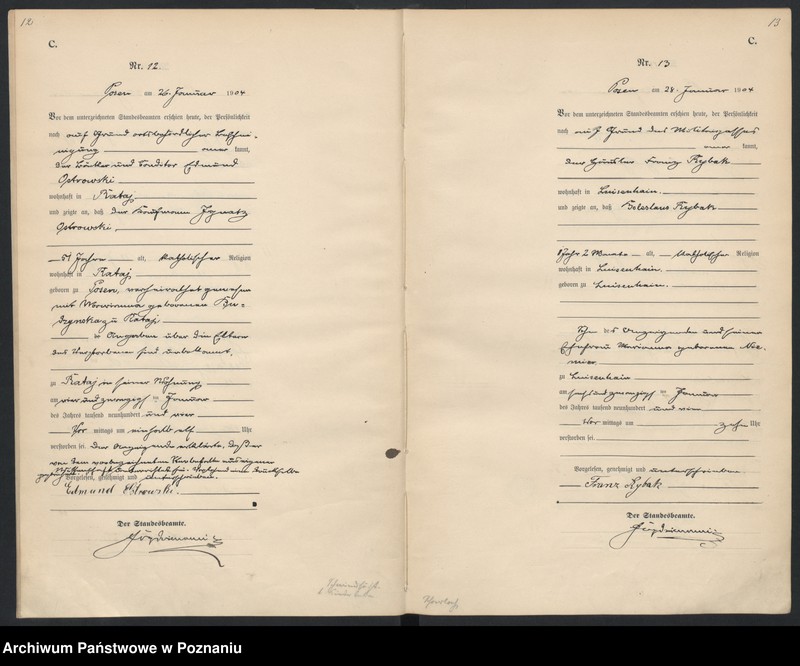 12
C.
Nr. 12.
Posen am 26. Januar 1904
Vor dem unterzeichneten Standesbeamten erschien heute, der Persönlichkeit
nach auf Grund ortsbehördlicher Beschei-
nigung kannt,
der und Edmund
Ostrowski
wohnhaft in Rataj
und zeigte an, daß der Kaufmann Ignatz
Ostrowski,
51 Jahre alt, katholischer Religion
wohnhaft in Rataj
geboren zu Posen, verheirathet gewesen
mit geborenen
zu Rataj
Angaben über die Eltern
des Verstorbenen sind unbekannt.
zu Rataj in seiner Wohnung
am vier und zwanzigsten Januar
des Jahres tausend neunhundert und vier
Vor mittags um einhalb elf Uhr
verstorben sei. Der Anzeigende erklärte, daß er
von dem vorbezeichneten Sterbefalle aus eigener
Wissenschaft unterrichtet sei. Vorstehend eine Druckstelle
Vorgelesen, genehmigt und unterschrieben.
Edmund Ostrowski.
Der Standesbeamte.
13
C.
Nr. 13
Posen am 28. Januar 1904
Vor dem unterzeichneten Standesbeamten erschien heute, der Persönlichkeit
nach auf Grund des Militärpasses
kannt,
der Häusler Franz Rybak
wohnhaft in Luisenhain.
und zeigte an, daß Boleslaus Rybak
1 Jahr 2 Monate alt, katholischer Religion
wohnhaft in Luisenhain.
geboren zu Luisenhain.
Sohn des Anzeigenden und seiner
Ehefrau Marianna geborenen
zu Luisenhain
am sechsundzwanzigsten Januar
des Jahres tausend neunhundert und vier
Vor mittags um zehn Uhr
verstorben sei.
Vorgelesen, genehmigt und unterschrieben.
Franz Rybak
Der Standesbeamte.
Archiwum Państwowe w Poznaniu